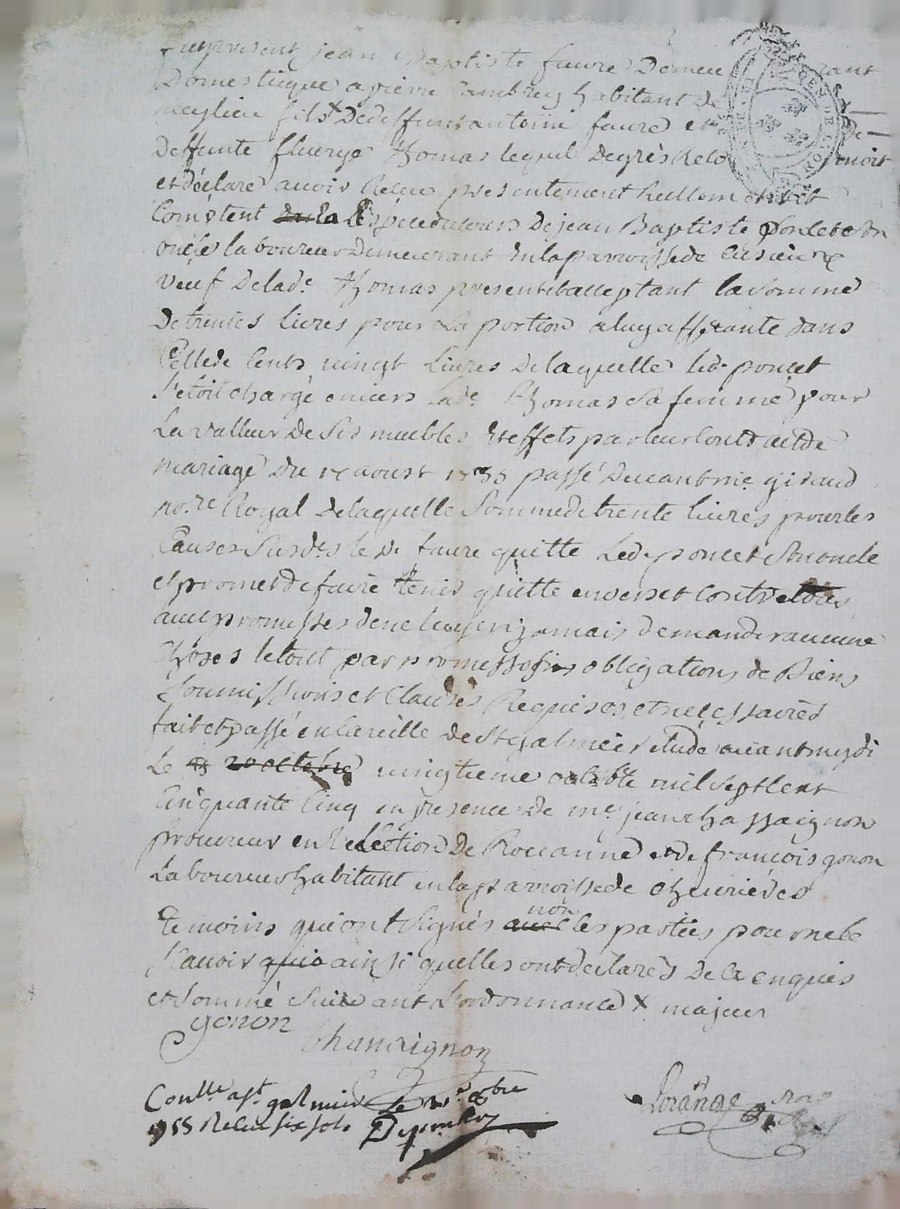 fut present jean Baptiste faure Demeurant
Domestique a pierre habitant de
meylieu fils x De deffunt antoine faure et De
Deffunte fleurye thomas lequel De gres
et declare avoir Receu presentement Reellement
Comptent En la Espece de cours De jean Baptiste poncet son
oncle laboureur Demeurant En la parroisse de
veuf De lad.e thomas present et acceptant la somme
De trentes Livres pour La portion a luy afferante dans
Celle de Cents vingt Livres De laquelle led. poncet
s'etoit chargé envers lad.e thomas sa femme pour
La valleur De ses meubles Et effets par leur Contract de
mariage Du 17 aoust 1735 passé Devant me. giraud
no.re Royal De laquelle Somme de trente livres pour les
Causes Susd.es le D. faure quitte Led. poncet Son oncle
et promet de faire tenir quitte envers et Contre tous
avec promesses de ne luy en jamais demander aucune
Choses le tout par promesses obligations de Biens
Soumissions et Clauses Requises et necessaires
fait et passé en la ville de St galmier etude avant mydi
Le 20 octobre vingtieme octobre mil sept Cent
Cinquante Cinq en presence de me. jean chassaignon
procureur en l'Election De Roüanne et de francois gonon
Laboureur habitant en la parroisse de chevrieres
temoins qui ont signés non
avec les parties pour ne le
sçavoir ainsi quelles ont declarés De ce enquis
et sommé suivant L'ordonnance x majeur
gonon
Chassaignon
Con.lle a St galmier Le 8bre
1755 Receu six sols